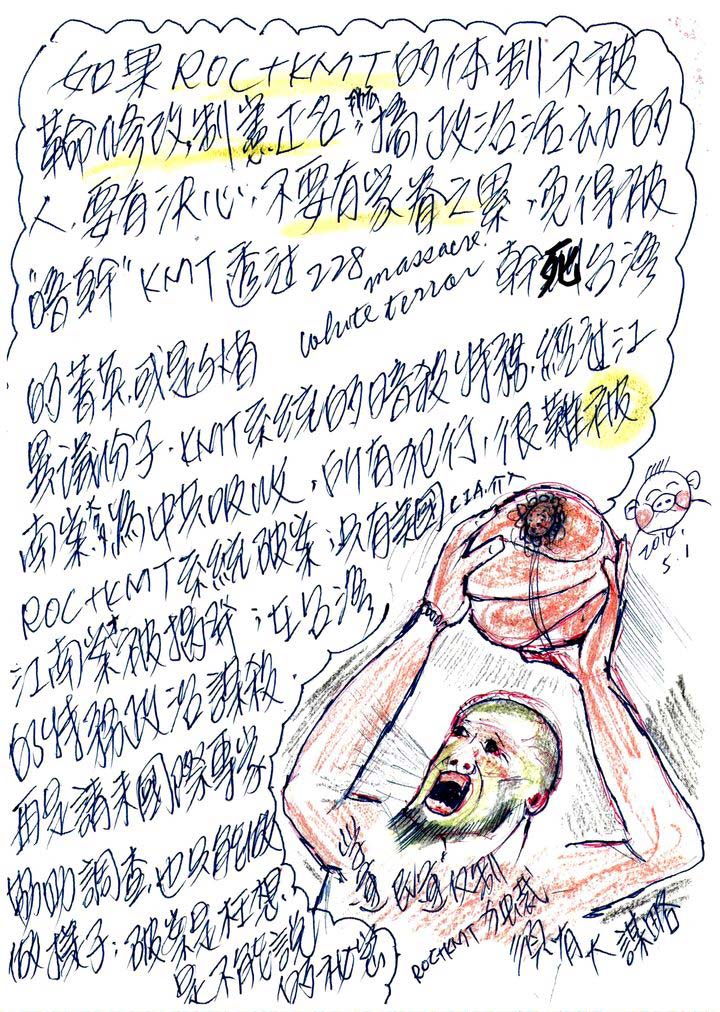 如果ROC+KMT的体制不被
革命修改.制憲正名,搞政治活动的
人,要有決心,不要有家眷之累,免得被
"暗幹" KMT透过228 massacre, white terror 幹死台湾
的菁英,或是
異議份子,KMT系統的暗殺特務,經过江
南案為中共吸收,所有犯行,很難被
ROC+KMT系統破案,只有美國CIA介入
江南案才被揭發;在台湾
的特務政治謀殺,
再是請来國際專家
協助調查,也只能做
做樣子;破案是狂想,
是不能說
的秘密
2014.
5.1
ROC+KMT
須有大謀略